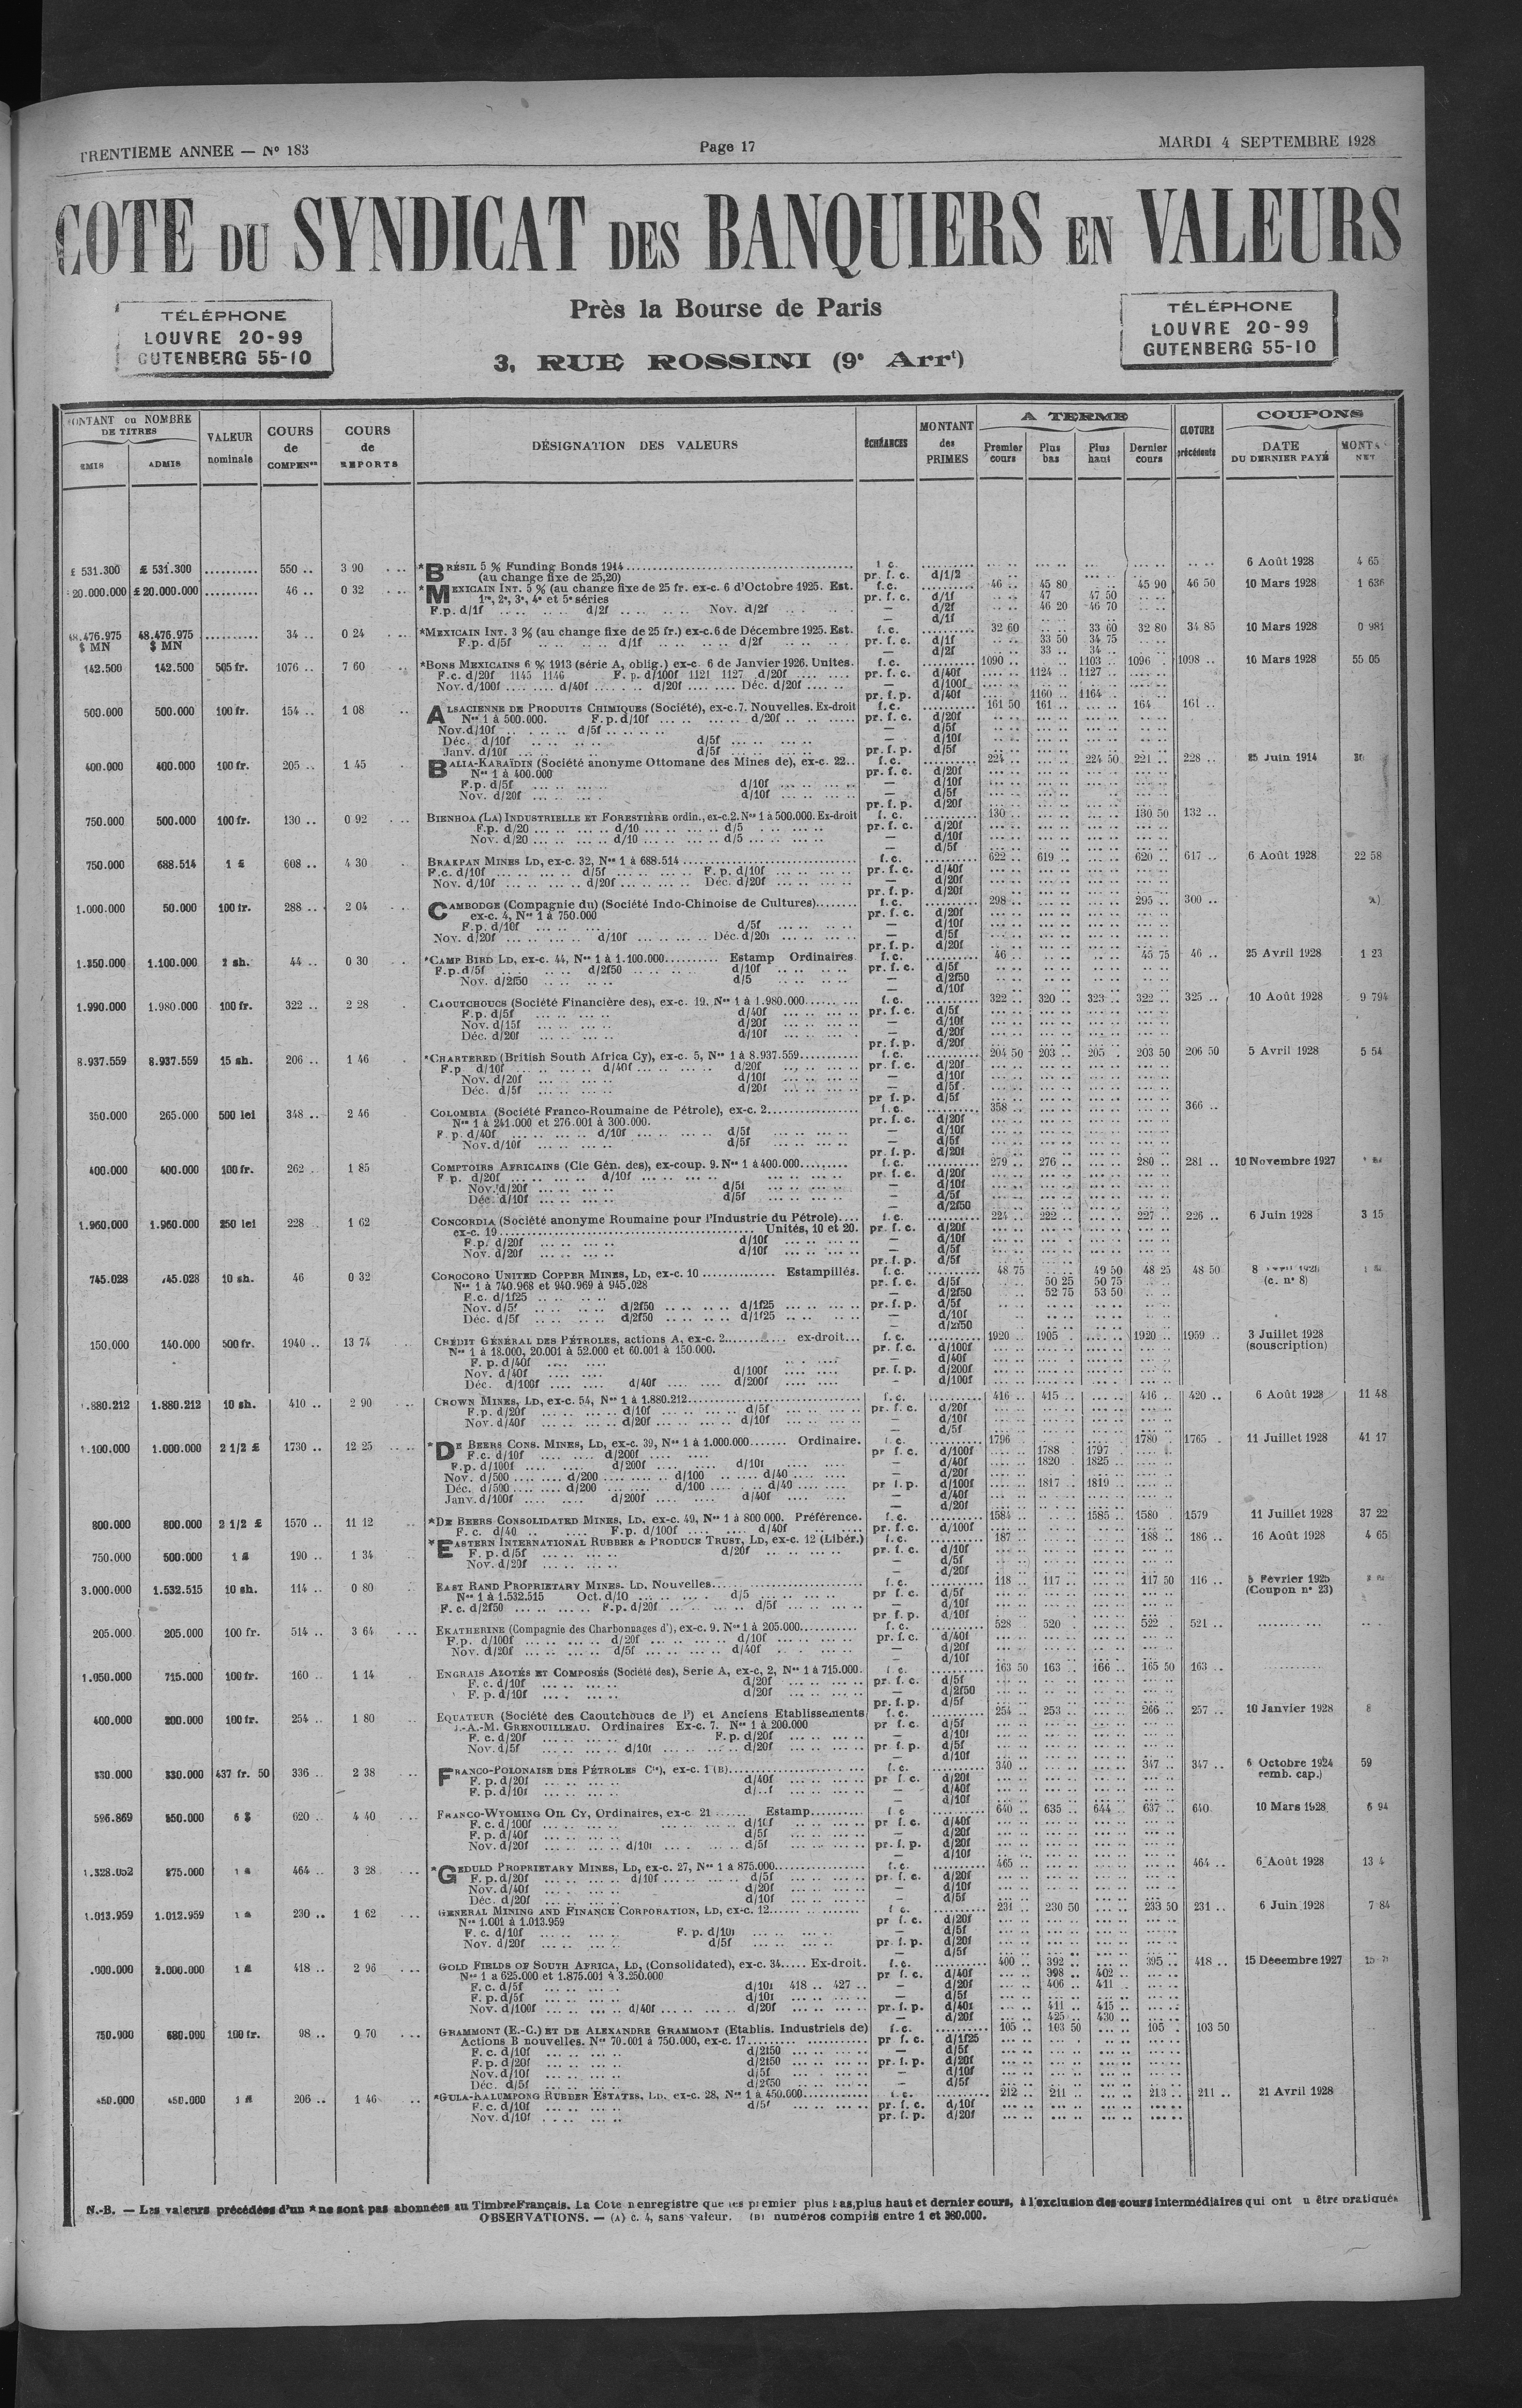 TRENTIEME ANNEE — No 183
Page 17
MARDI 4 SEPTEMBRE 1928
COTE DU SYNDICAT DES BANQUIERS EN VALEURS
Près la Bourse de Paris
3, RUE ROSSINI (9e Arrt)
TÉLÉPHONE
LOUVRE 20-99
GUTENBERG 55-10
TÉLÉPHONE
LOUVRE 20-99
GUTENBERG 55-10
MONTANT ou NOMBRE DE TITRES
EMIS ADMIS
VALEUR nominale
COURS de COMPENon
COURS de REPORTS
DÉSIGNATION DES VALEURS
ÉCHÉANCES
MONTANT des PRIMES
A TERME
Premier cours Plus bas Plus haut Dernier cours
CLOTURE précédente
COUPONS
DATE DU DERNIER PAYÉ
MONT NET
£ 531.300 £ 531.300 .......... 550 .. 3 90 *BRÉSIL 5 % Funding Bonds 1914 f.c. 6 Août 1928 4 65
(au change fixe de 25,20) pr. f. c. d/1/2
20.000.000 £ 20.000.000 .......... 46 .. 0 32 *MEXICAIN INT. 5 % (au change fixe de 25 fr. ex-c. 6 d'Octobre 1925. Est. f.c. 46 .. 45 80 45 90 46 50 10 Mars 1928 1 636
1re, 2e, 3e, 4e et 5e séries pr. f. c. d/1f 47 47 50
F.p. d/1f d/2f Nov. d/2f — d/2f 46 20 46 70
— d/1f
48.476.975 $ MN 48.476.975 $ MN .......... 34 .. 0 24 *MEXICAIN INT. 3 % (au change fixe de 25 fr.) ex-c. 6 de Décembre 1925. Est. f.c. 32 60 33 60 32 80 34 85 10 Mars 1928 0 981
F.p. d/5f d/1f d/2f pr. f. c. d/1f 33 50 34 75
— d/2f 33 .. 34 ..
142.500 142.500 505 fr. 1076 .. 7 60 *BONS MEXICAINS 6 % 1913 (série A, oblig.) ex-c. 6 de Janvier 1926. Unités. f.c. 1090 .. 1103 .. 1096 . 1098 .. 10 Mars 1928 55 05
F.c. d/20f 1145 1146 F. p. d/100f 1121 1127 d/20f pr. f. c. d/40f 1124 .. 1127 ..
Nov. d/100f d/40f d/20f Déc. d/20f — d/100f
pr. f. p. d/40f 1160 .. 1164 ..
500.000 500.000 100 fr. 154 .. 1 08 ALSACIENNE DE PRODUITS CHIMIQUES (Société), ex-c. 7. Nouvelles. Ex-droit f.c. 161 50 161 .. 164 .. 161 ..
Nos 1 à 500.000. F.p. d/10f d/20f pr. f. c. d/20f
Nov. d/10f d/5f — d/5f
Déc. d/10f d/5f — d/10f
Janv. d/10f d/5f pr. f. p. d/5f
400.000 400.000 100 fr. 205 .. 1 45 BALIA-KARAÏDIN (Société anonyme Ottomane des Mines de), ex-c. 22.. f.c. 224 .. 224 50 221 .. 228 .. 25 Juin 1914
Nos 1 à 400.000 pr. f. c. d/20f
F.p. d/5f d/10f — d/10f
Nov. d/20f d/10f — d/5f
pr. f. p. d/20f
750.000 500.000 100 fr. 130 .. 0 92 BIENHOA (LA) INDUSTRIELLE ET FORESTIÈRE ordin., ex-c. 2. Nos 1 à 500.000. Ex-droit f.c. 130 .. 130 50 132 ..
F.p. d/20 d/10 d/5 pr. f. c. d/20f
Nov. d/20 d/10 d/5 — d/10f
— d/5f
750.000 688.514 1 £ 608 .. 4 30 BRAKPAN MINES LD, ex-c. 32, Nos 1 à 688.514 f.c. 622 .. 619 .. 620 .. 617 .. 6 Août 1928 22 58
F.c. d/10f d/5f F. p. d/10f pr. f. c. d/40f
Nov. d/10f d/20f Déc. d/20f — d/20f
pr. f. p. d/20f
1.000.000 50.000 100 fr. 288 .. 2 04 CAMBODGE (Compagnie du) (Société Indo-Chinoise de Cultures) f.c. 298 .. 295 .. 300 ..
ex-c. 4, Nos 1 à 750.000 pr. f. c. d/20f
F.p. d/10f d/5f — d/10f
Nov. d/20f d/10f Déc. d/20f — d/5f
pr. f. p. d/20f
1.350.000 1.100.000 2 sh. 44 .. 0 30 *CAMP BIRD LD, ex-c. 44, Nos 1 à 1.100.000 Estamp Ordinaires f.c. 46 .. 45 75 46 .. 25 Avril 1928 1 23
F.p. d/5f d/2f50 d/10f pr. f. c. d/5f
Nov. d/2f50 d/5 — d/2f50
— d/10f
1.990.000 1.980.000 100 fr. 322 .. 2 28 CAOUTCHOUCS (Société Financière des), ex-c. 19, Nos 1 à 1.980.000 f.c. 322 .. 320 .. 323 .. 322 .. 325 .. 10 Août 1928 9 794
F.p. d/5f d/40f pr. f. c. d/5f
Nov. d/15f d/20f — d/10f
Déc. d/20f d/10f — d/20f
pr. f. p. d/20f
8.937.559 8.937.559 15 sh. 206 .. 1 46 *CHARTERED (British South Africa Cy), ex-c. 5, Nos 1 à 8.937.559 f.c. 204 50 203 .. 205 . 203 50 206 50 5 Avril 1928 5 54
F.p d/10f d/40f d/20f pr. f. c. d/20f
Nov. d/20f d/10f — d/10f
Déc. d/5f d/20f — d/5f
pr f. p. d/5f
350.000 265.000 500 lei 348 .. 2 46 COLOMBIA (Société Franco-Roumaine de Pétrole), ex-c. 2 f.c. 358 .. 366 ..
Nos 1 à 241.000 et 276.001 à 300.000. pr. f. c. d/20f
F. p. d/40f d/10f d/5f — d/10f
Nov. d/10f d/5f — d/5f
pr. f. p. d/20f
400.000 400.000 100 fr. 262 . 1 85 COMPTOIRS AFRICAINS (Cie Gén. des), ex-coup. 9. Nos 1 à 400.000 f.c. 279 .. 276 .. 280 .. 281 .. 10 Novembre 1927
F p. d/20f d/10f pr. f. c. d/20f
Nov. d/20f d/5f — d/10f
Déc. d/10f d/5f — d/5f
— d/2f50
1.960.000 1.960.000 250 lei 228 1 62 CONCORDIA (Société anonyme Roumaine pour l'Industrie du Pétrole).... f.c. 224 .. 222 .. 227 .. 226 .. 6 Juin 1928 3 15
ex-c. 19 Unités, 10 et 20. pr. f. c. d/20f
F.p. d/20f d/10f — d/10f
Nov. d/20f d/10f — d/5f
pr. f. p. d/5f
745.028 745.028 10 sh. 46 0 32 COROCORO UNITED COPPER MINES, LD, ex-c. 10 Estampillés. f.c. 48 75 49 50 48 25 48 50 8
Nos 1 à 740.968 et 940.969 à 945.028 pr. f. c. d/5f 50 25 50 75 (c. no 8)
F.c. d/1f25 — d/2f50 52 75 53 50
Nov. d/5f d/2f50 d/1f25 pr. f. p. d/5f
Déc. d/5f d/2f50 d/1f25 — d/10f
— d/2f50
150.000 140.000 500 fr. 1940 .. 13 74 CRÉDIT GÉNÉRAL DES PÉTROLES, actions A, ex-c. 2 ex-droit... f.c. 1920 .. 1905 . 1920 .. 1959 .. 3 Juillet 1928
Nos 1 à 18.000, 20.001 à 52.000 et 60.001 à 150.000. pr. f. c. d/100f (souscription)
F. p. d/40f — d/40f
Nov. d/40f d/100f pr. f. p. d/200f
Déc. d/100f d/40f d/200f — d/100f
1.880.212 1.880.212 10 sh. 410 .. 2 90 CROWN MINES, LD, ex-c. 54, Nos 1 à 1.880.212 f.c. 416 .. 415 .. 416 .. 420 .. 6 Août 1928 11 48
F.p. d/20f d/10f d/5f pr. f. c. d/20f
Nov. d/40f d/20f d/10f — d/10f
— d/5f
1.100.000 1.000.000 2 1/2 £ 1730 .. 12 25 *DE BEERS CONS. MINES, LD, ex-c. 39, Nos 1 à 1.000.000 Ordinaire. f.c. 1796 1780 . 1765 . 11 Juillet 1928 41 17
F.c. d/10f d/200f pr f. c. d/100f 1788 1797
F.p. d/100f d/200f d/10f — d/40f 1820 . 1825 ..
Nov. d/500 d/200 d/100 d/40 — d/20f
Déc. d/500 d/200 d/100 d/40 pr f.p. d/100f 1817 . 1819 ..
Janv. d/100f d/200f d/40f — d/40f
— d/20f
800.000 800.000 2 1/2 £ 1570 .. 11 12 *DE BEERS CONSOLIDATED MINES, LD, ex-c. 49, Nos 1 à 800.000. Préférence. f.c. 1584 .. 1585 .. 1580 . 1579 11 Juillet 1928 37 22
F. c. d/40 F.p. d/100f d/40f pr. f. c. d/100f
750.000 500.000 1 £ 190 .. 1 34 *EASTERN INTERNATIONAL RUBBER & PRODUCE TRUST, LD, ex-c. 12 (Libér.) f.c. 187 .. 188 .. 186 .. 16 Août 1928 4 65
F. p. d/5f d/20f pr. f. c. d/10f
Nov. d/20f — d/5f
— d/20f
3.000.000 1.532.515 10 sh. 114 .. 0 80 EAST RAND PROPRIETARY MINES. LD, Nouvelles f.c. 118 .. 117 .. 117 50 116 .. 5 Février 1925
Nos 1 à 1.532.515 Oct. d/10 d/5 pr f. c. d/5f (Coupon no 23)
F. c. d/2f50 F.p. d/20f d/5f — d/10f
pr. f. p. d/10f
205.000 205.000 100 fr. 514 .. 3 64 EKATHERINE (Compagnie des Charbonnages d'), ex-c. 9. Nos 1 à 205.000 f.c. 528 520 . 522 . 521 ..
F.p. d/100f d/20f d/10f pr. f. c. d/40f
Nov. d/20f d/5f d/40f — d/20f
— d/10f
1.050.000 715.000 100 fr. 160 .. 1 14 ENGRAIS AZOTÉS ET COMPOSÉS (Société des), Serie A, ex-c, 2, Nos 1 à 715.000. f.c. 163 50 163 .. 166 .. 165 50 163 ..
F. c. d/10f d/20f pr. f. c. d/5f
F. p. d/10f d/20f — d/2f50
pr. f. p. d/5f
400.000 200.000 100 fr. 254 .. 1 80 EQUATEUR (Société des Caoutchoucs de l') et Anciens Etablissements f.c. 254 .. 253 .. 266 .. 257 .. 10 Janvier 1928 8
J.-A.-M. GRENOUILLEAU. Ordinaires Ex-c. 7. Nos 1 à 200.000 pr f. c. d/5f
F. c. d/20f F.p. d/20f — d/10f
Nov. d/5f d/10f d/20f pr f. p. d/5f
— d/10f
330.000 330.000 437 fr. 50 336 .. 2 38 FRANCO-POLONAISE DES PÉTROLES Cie), ex-c. 1 (B) f.c. 340 .. 347 .. 347 .. 6 Octobre 1924 59
F. p. d/20f d/40f pr f. c. d/20f remb. cap.)
F. p. d/10f — d/40f
— d/10f
596.869 250.000 6 $ 620 .. 4 40 FRANCO-WYOMING OIL CY, Ordinaires, ex-c 21 Estamp f c 640 .. 635 .. 644 .. 637 .. 640 10 Mars 1928 6 94
F. c. d/100f d/10f pr f. c. d/40f
F. p. d/40f d/5f — d/20f
Nov. d/20f d/10f d/5f pr. f. p. d/20f
— d/10f
875.000 464 .. 3 28 *GEDULD PROPRIETARY MINES, LD, ex-c. 27, Nos 1 à 875.000 f.c. 465 .. 464 .. 6 Août 1928 13 4
F. p. d/20f d/10f d/5f pr. f. c. d/20f
Nov. d/40f d/20f — d/10f
Déc. d/20f d/10f — d/5f
1.013.959 1.012.959 230 .. 1 62 GENERAL MINING AND FINANCE CORPORATION, LD, ex-c. 12 f c. 231 .. 230 50 233 50 231 .. 6 Juin 1928 7 84
Nos 1.001 à 1.013.959 pr f. c. d/20f
F. c. d/10f F. p. d/10f — d/5f
Nov. d/20f d/5f pr. f. p. d/20f
— d/5f
2.000.000 418 .. 2 96 GOLD FIELDS OF SOUTH AFRICA, LD, (Consolidated), ex-c. 34 Ex-droit. f.c. 400 .. 392 .. 395 .. 418 .. 15 Décembre 1927
Nos 1 a 625.000 et 1.875.001 à 3.250.000 pr f. c. d/40f 398 .. 402 ..
F. c. d/5f d/10f 418 .. 427 .. — d/20f 406 .. 411 ..
F. p. d/5f d/10f — d/5f
Nov. d/100f d/40f d/20f pr. f. p. d/40f 411 .. 415 ..
— d/20f 425 .. 430 ..
750.000 680.000 100 fr. 98 .. 0 70 GRAMMONT (E.-C.) ET DE ALEXANDRE GRAMMONT (Etablis. Industriels de) f.c. 105 .. 103 50 105 . 103 50
Actions B nouvelles. Nos 70.001 à 750.000, ex-c. 17 pr f. c. d/1f25
F. c. d/10f d/2f50 — d/5f
F. p. d/20f d/2f50 pr. f. p. d/20f
Nov. d/10f d/5f — d/10f
Déc. d/5f d/2f50 — d/5f
450.000 450.000 206 .. 1 46 *GULA-KALUMPONG RUBBER ESTATES, LD, ex-c. 28, Nos 1 à 450.000 f.c. 212 .. 211 .. 213 .. 211 .. 21 Avril 1928
F. c. d/10f d/5f pr. f. c. d/10f
Nov. d/10f pr. f. p. d/20f
N.-B. — Les valeurs précédées d'un * ne sont pas abonnées au Timbre Français. La Cote n enregistre que les premier plus bas, plus haut et dernier cours, à l'exclusion des cours intermédiaires qui ont u être pratiqués
OBSERVATIONS. — (A) c. 4, sans valeur. (B) numéros compris entre 1 et 380.000.